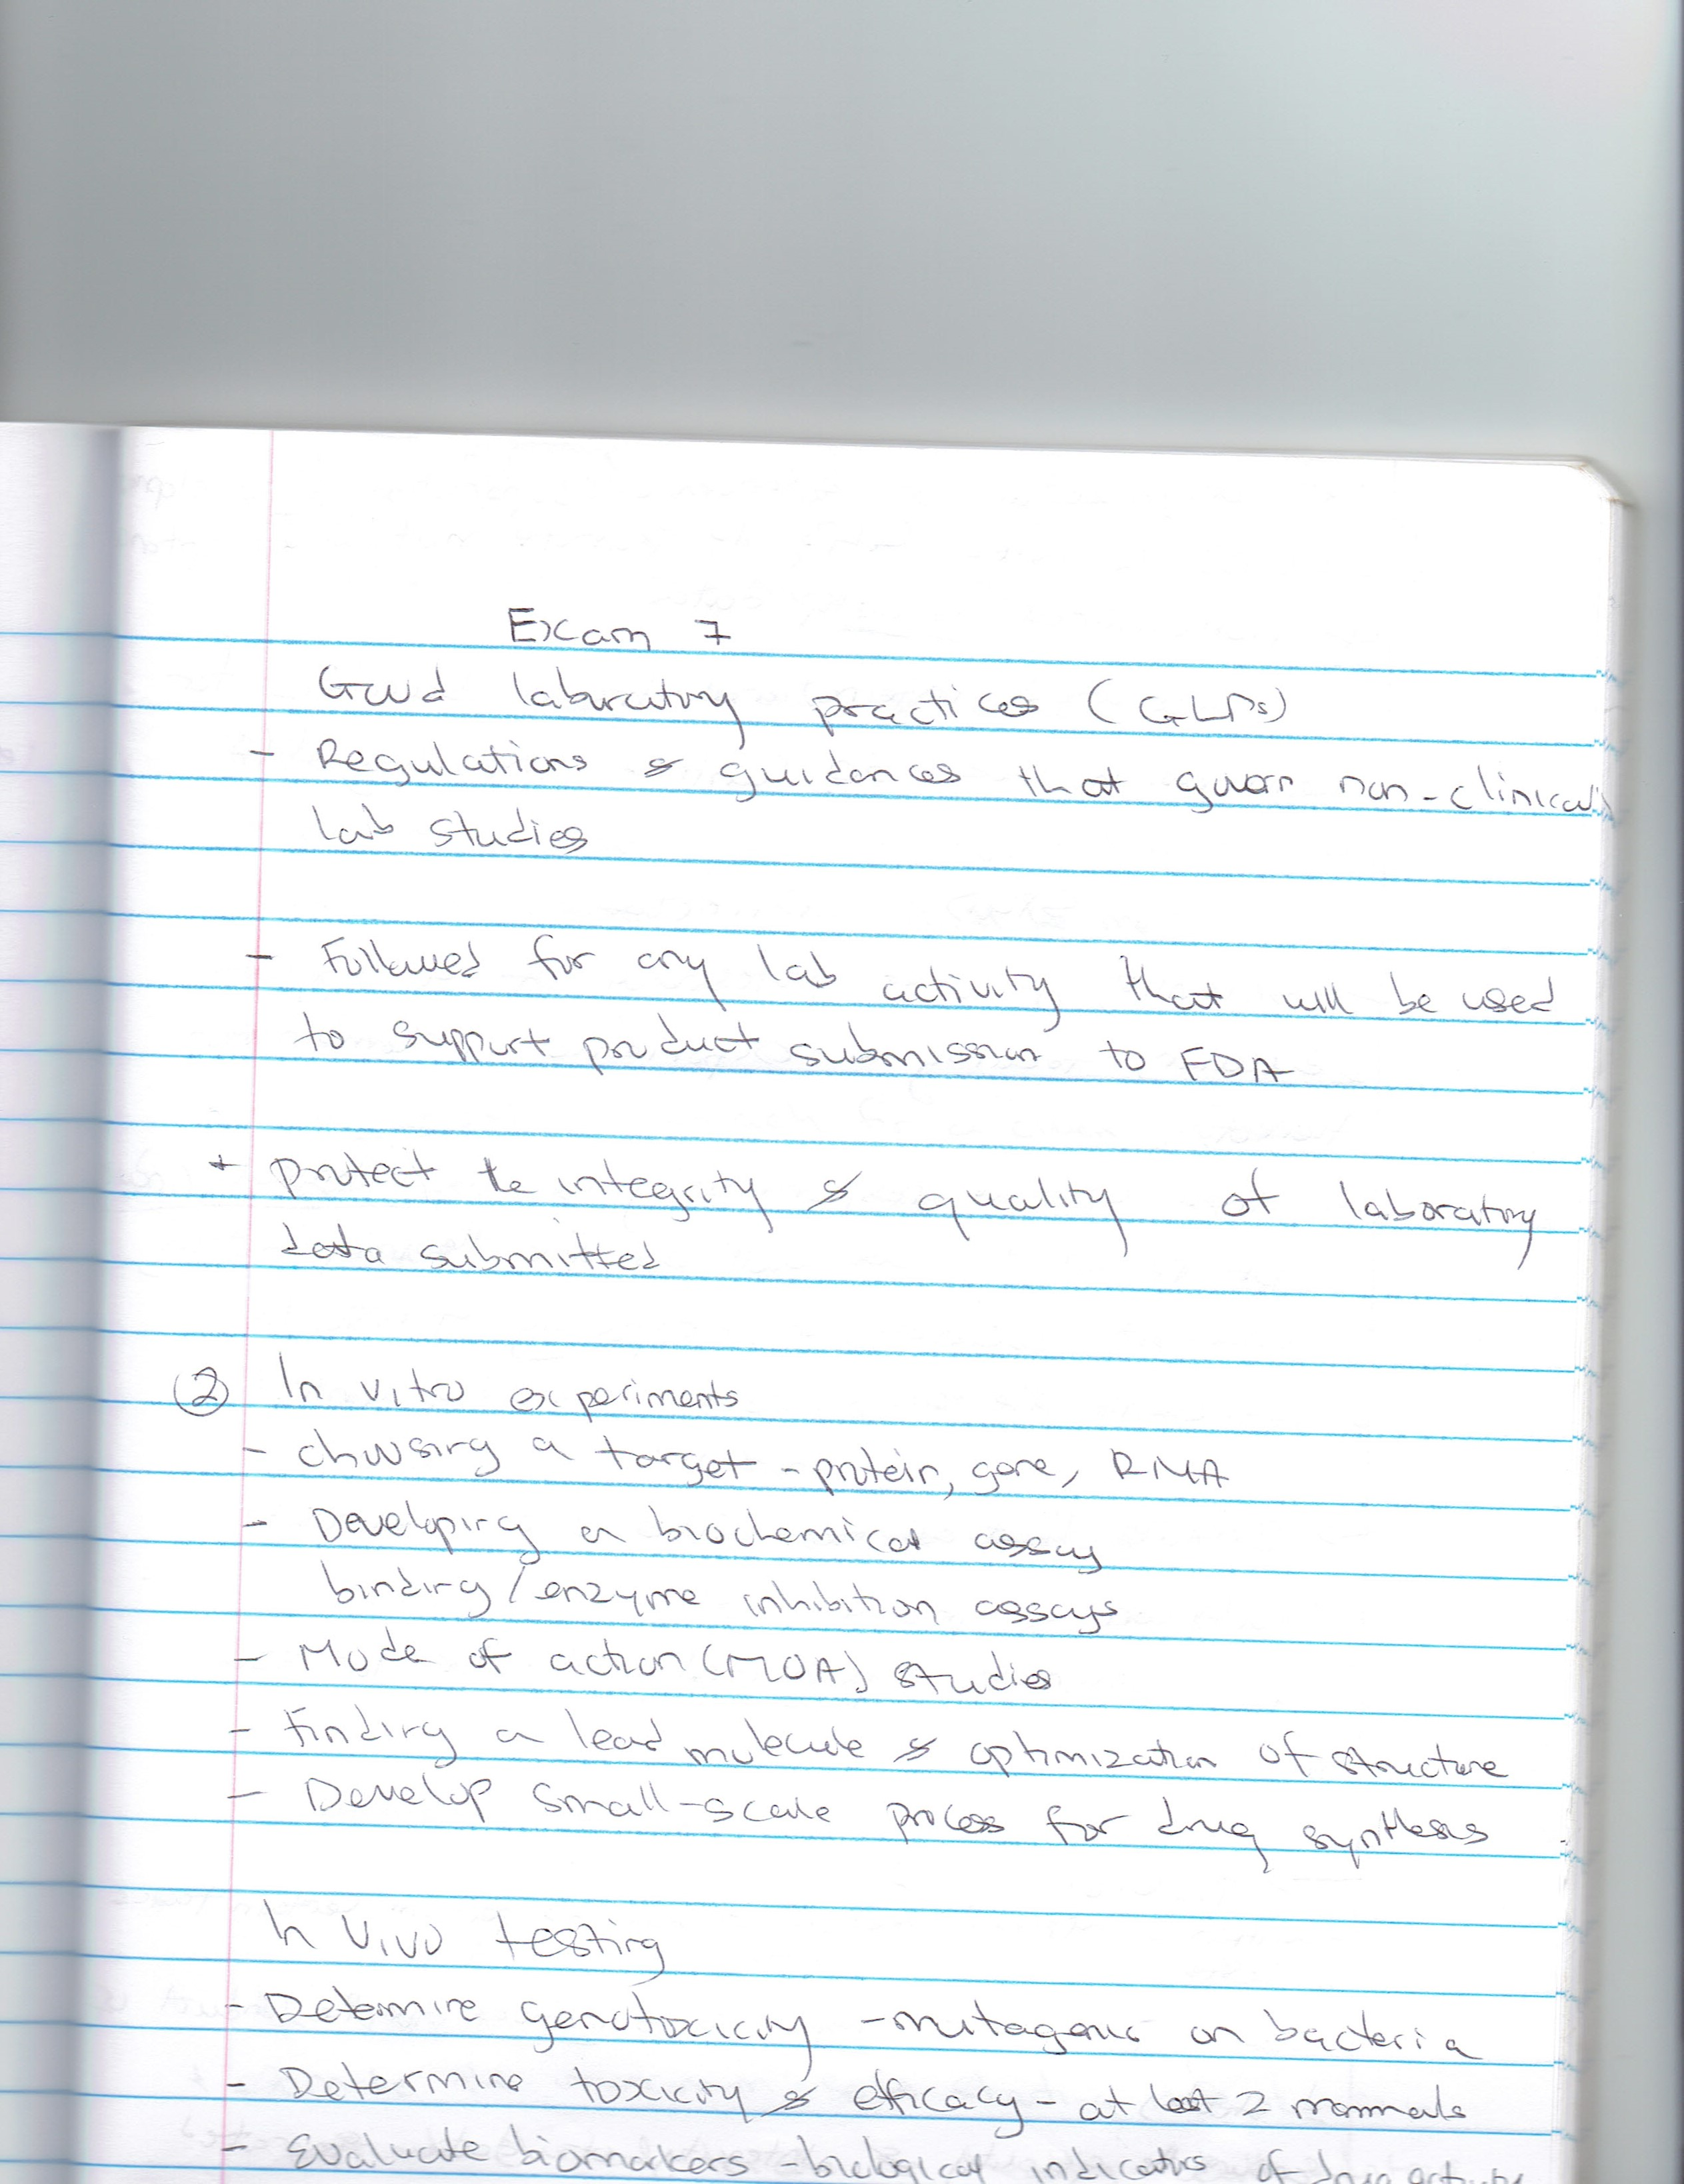 Exam 7
Good laboratory practices (GLPs)
- Regulations & guidances that govern non-clinical
lab studies
- Followed for any lab activity that will be used
to support product submission to FDA
+ protect the integrity & quality of laboratory
data submitted
② In vitro experiments
- choosing a target - protein, gene, RNA
- Developing a biochemical assay
binding/enzyme inhibition assays
- Mode of action (MOA) studies
- Finding a lead molecule & optimization of structure
- Develop small-scale process for drug synthesis
In vivo testing
- Determine genotoxicity - mutagenic on bacteria
- Determine toxicity & efficacy - at least 2 mammals
- Evaluate biomarkers - biological indicators of drug activity